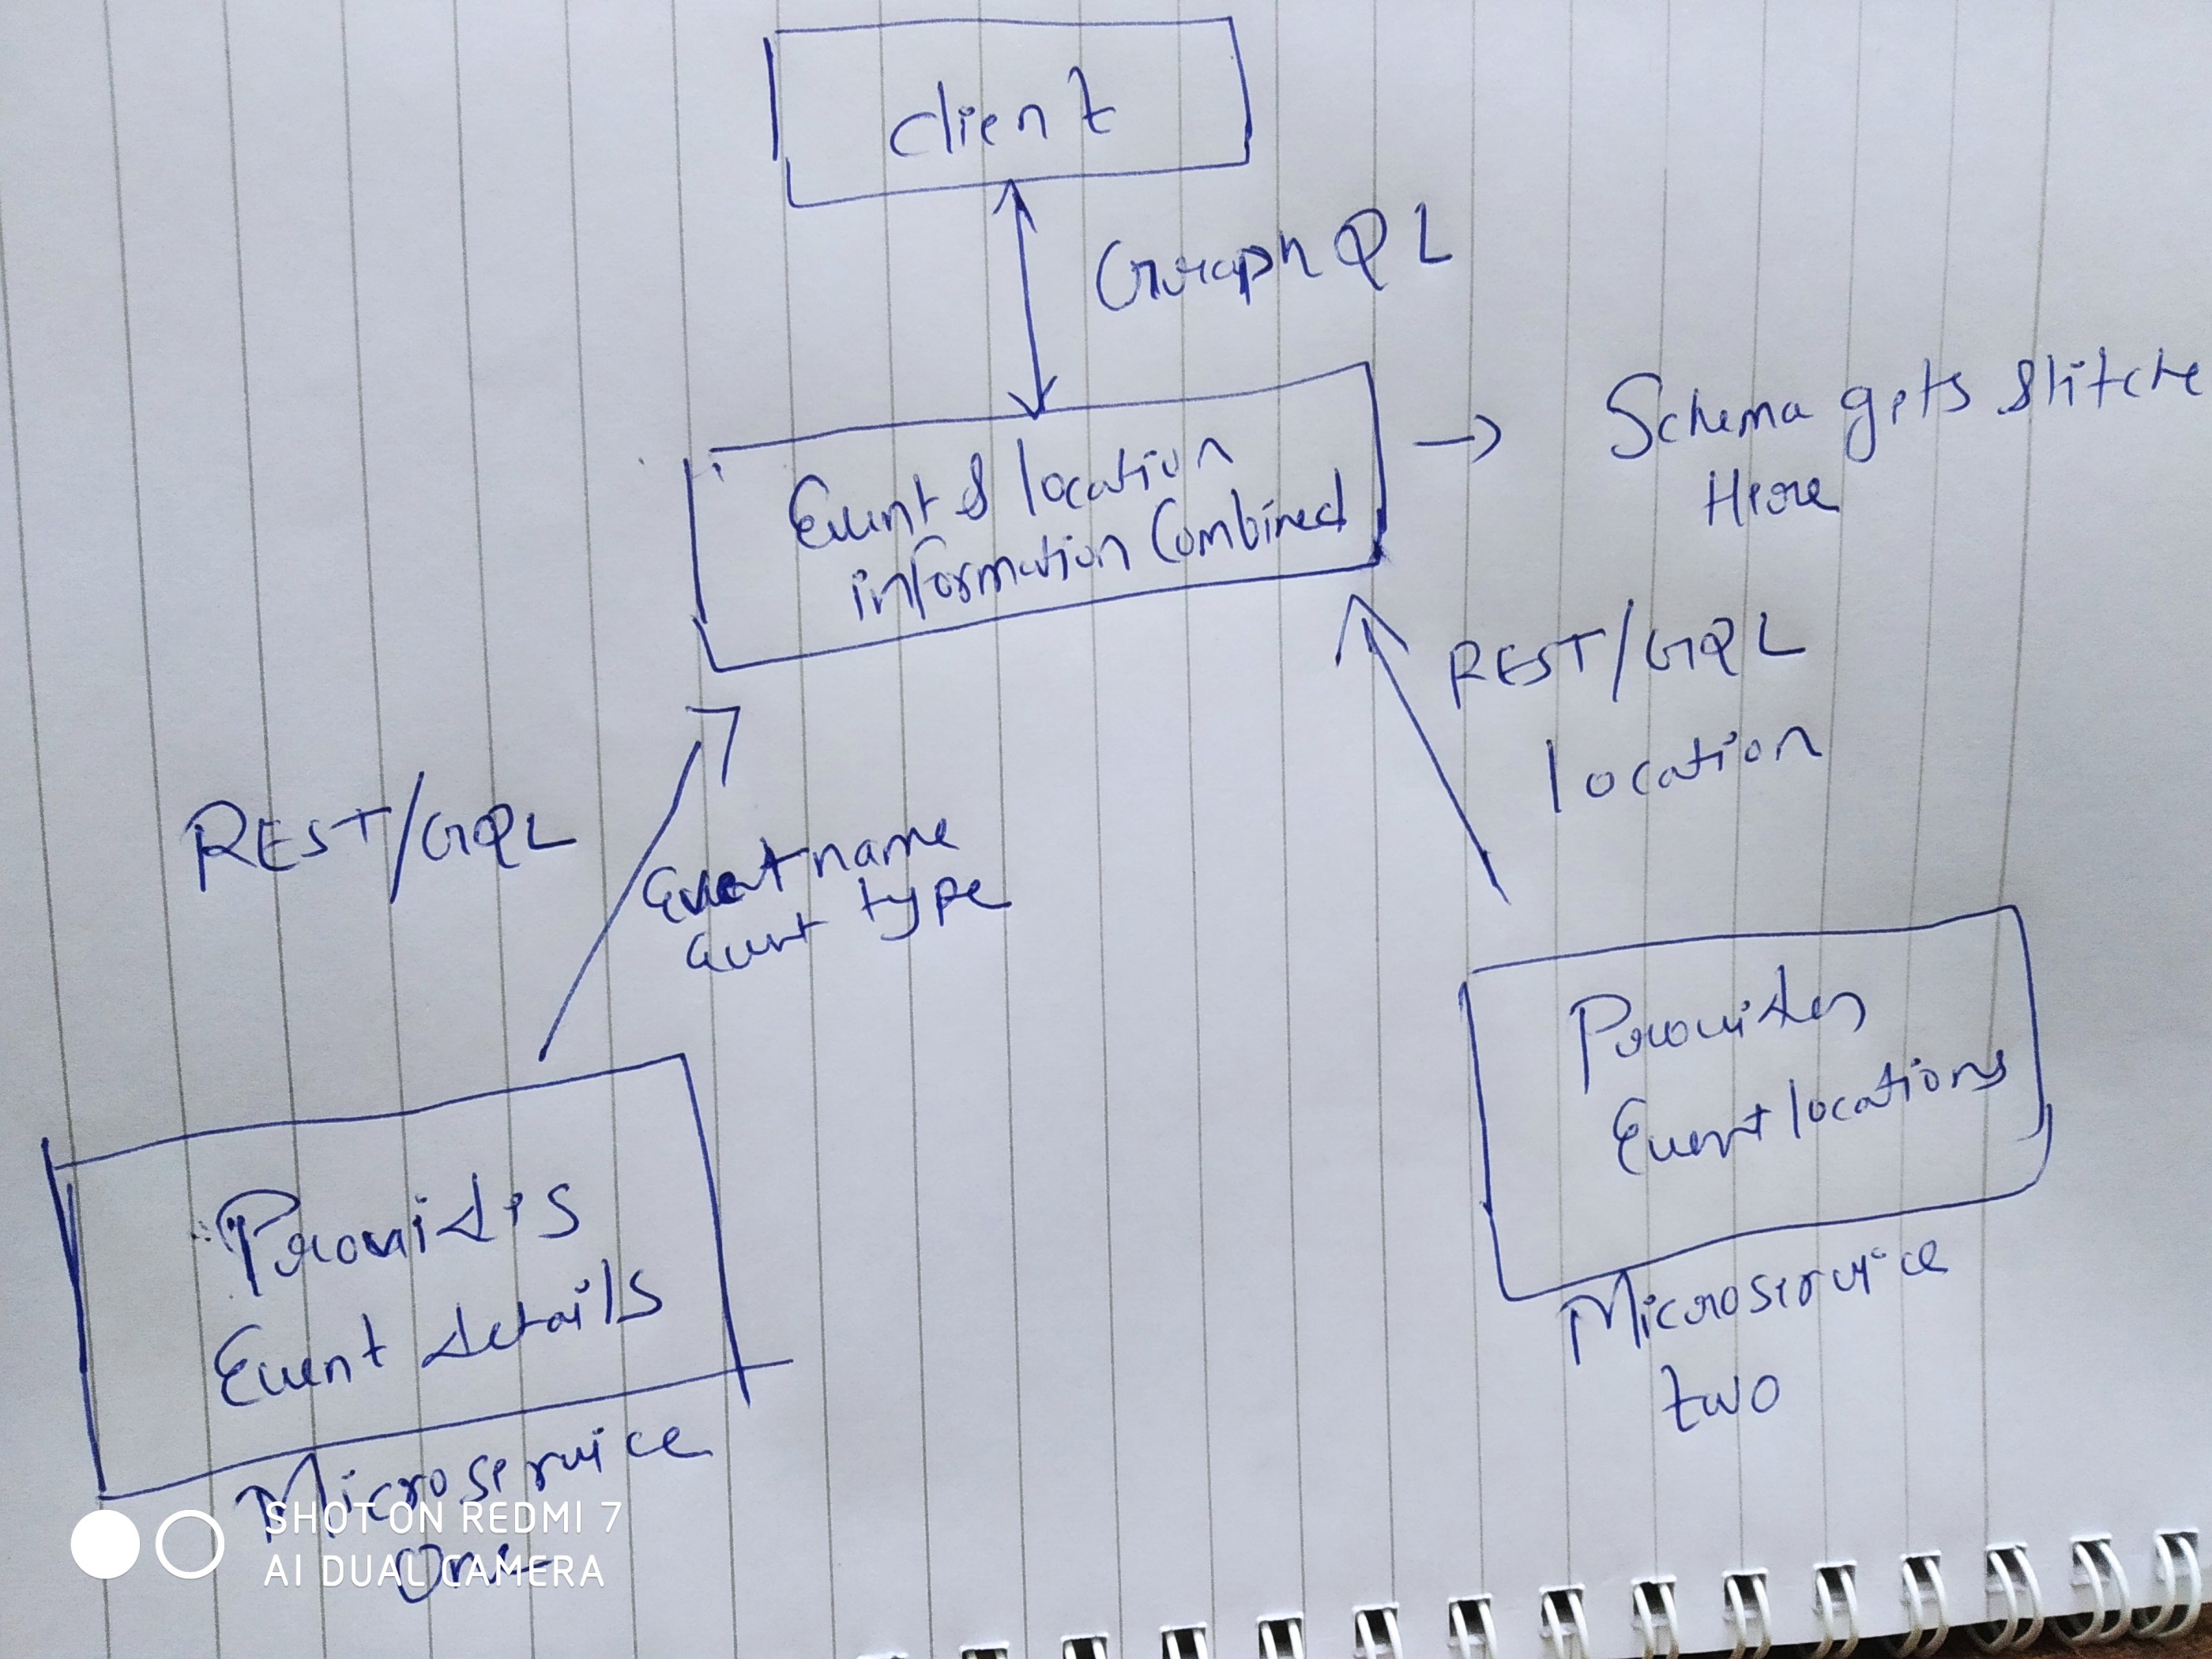 client
GraphQL
Event & location
information Combined
→ Schema gets stitche
Here
REST/GQL
location
REST/GQL
Event name
event type
Provides
Event locations
Microservice
two
Provides
Event details
Microservice
One
SHOT ON REDMI 7
AI DUAL CAMERA